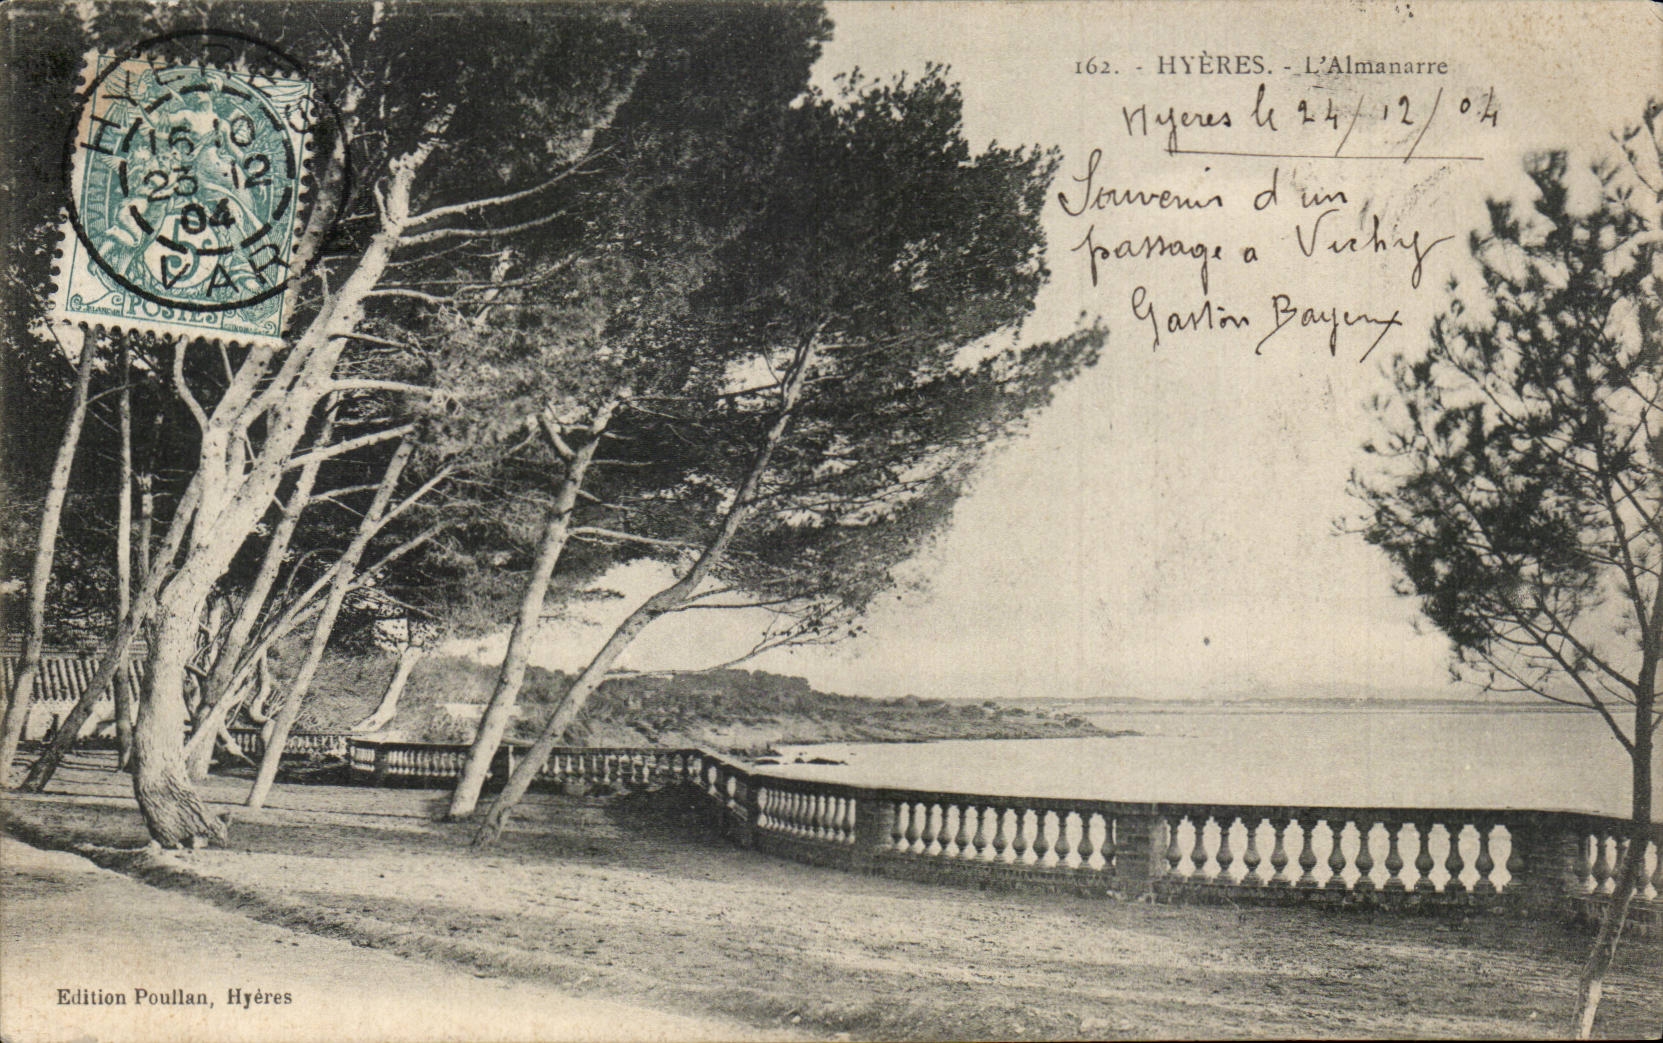 162. - HYÈRES. - L'Almanarre
Hyeres le 24/12/04
Souvenir d'un
passage a Vichy
Gaston Bayeux
HYERES
15 10
23 -12
04
VAR
5c
POSTES
Edition Poullan, Hyères